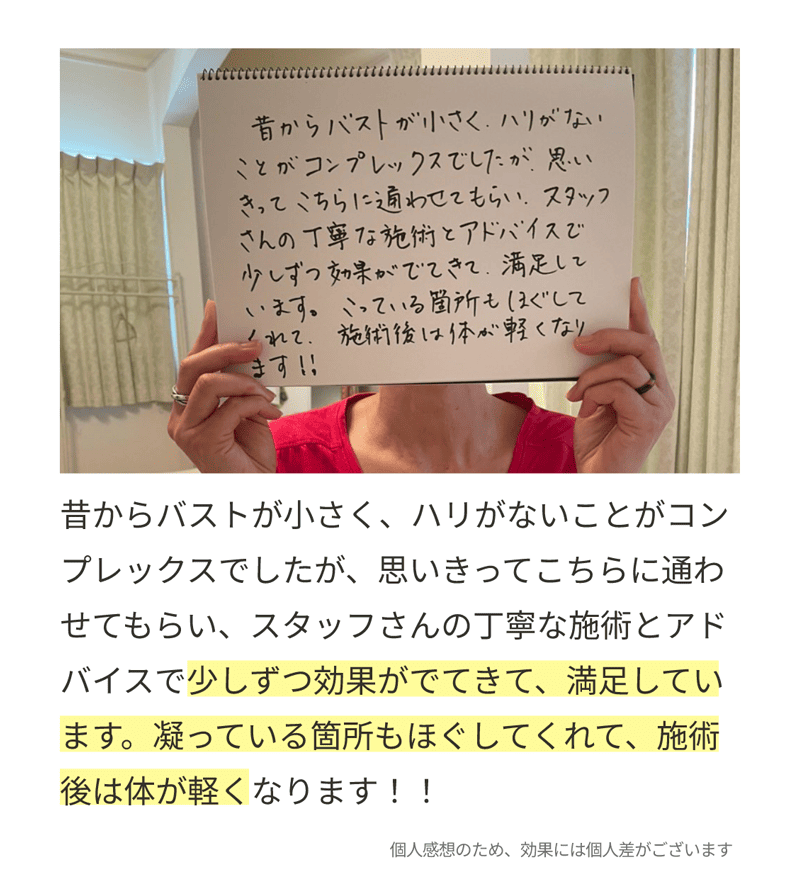 昔からバストが小さく、ハリがない
ことがコンプレックスでしたが、思い
きってこちらに通わせてもらい、スタッフ
さんの丁寧な施術とアドバイスで
少しずつ効果がでてきて、満足して
います。こっている箇所もほぐして
くれて、施術後は体が軽くなり
ます!!
昔からバストが小さく、ハリがないことがコン
プレックスでしたが、思いきってこちらに通わ
せてもらい、スタッフさんの丁寧な施術とアド
バイスで少しずつ効果がでてきて、満足してい
ます。凝っている箇所もほぐしてくれて、施術
後は体が軽くなります！！
個人感想のため、効果には個人差がございます